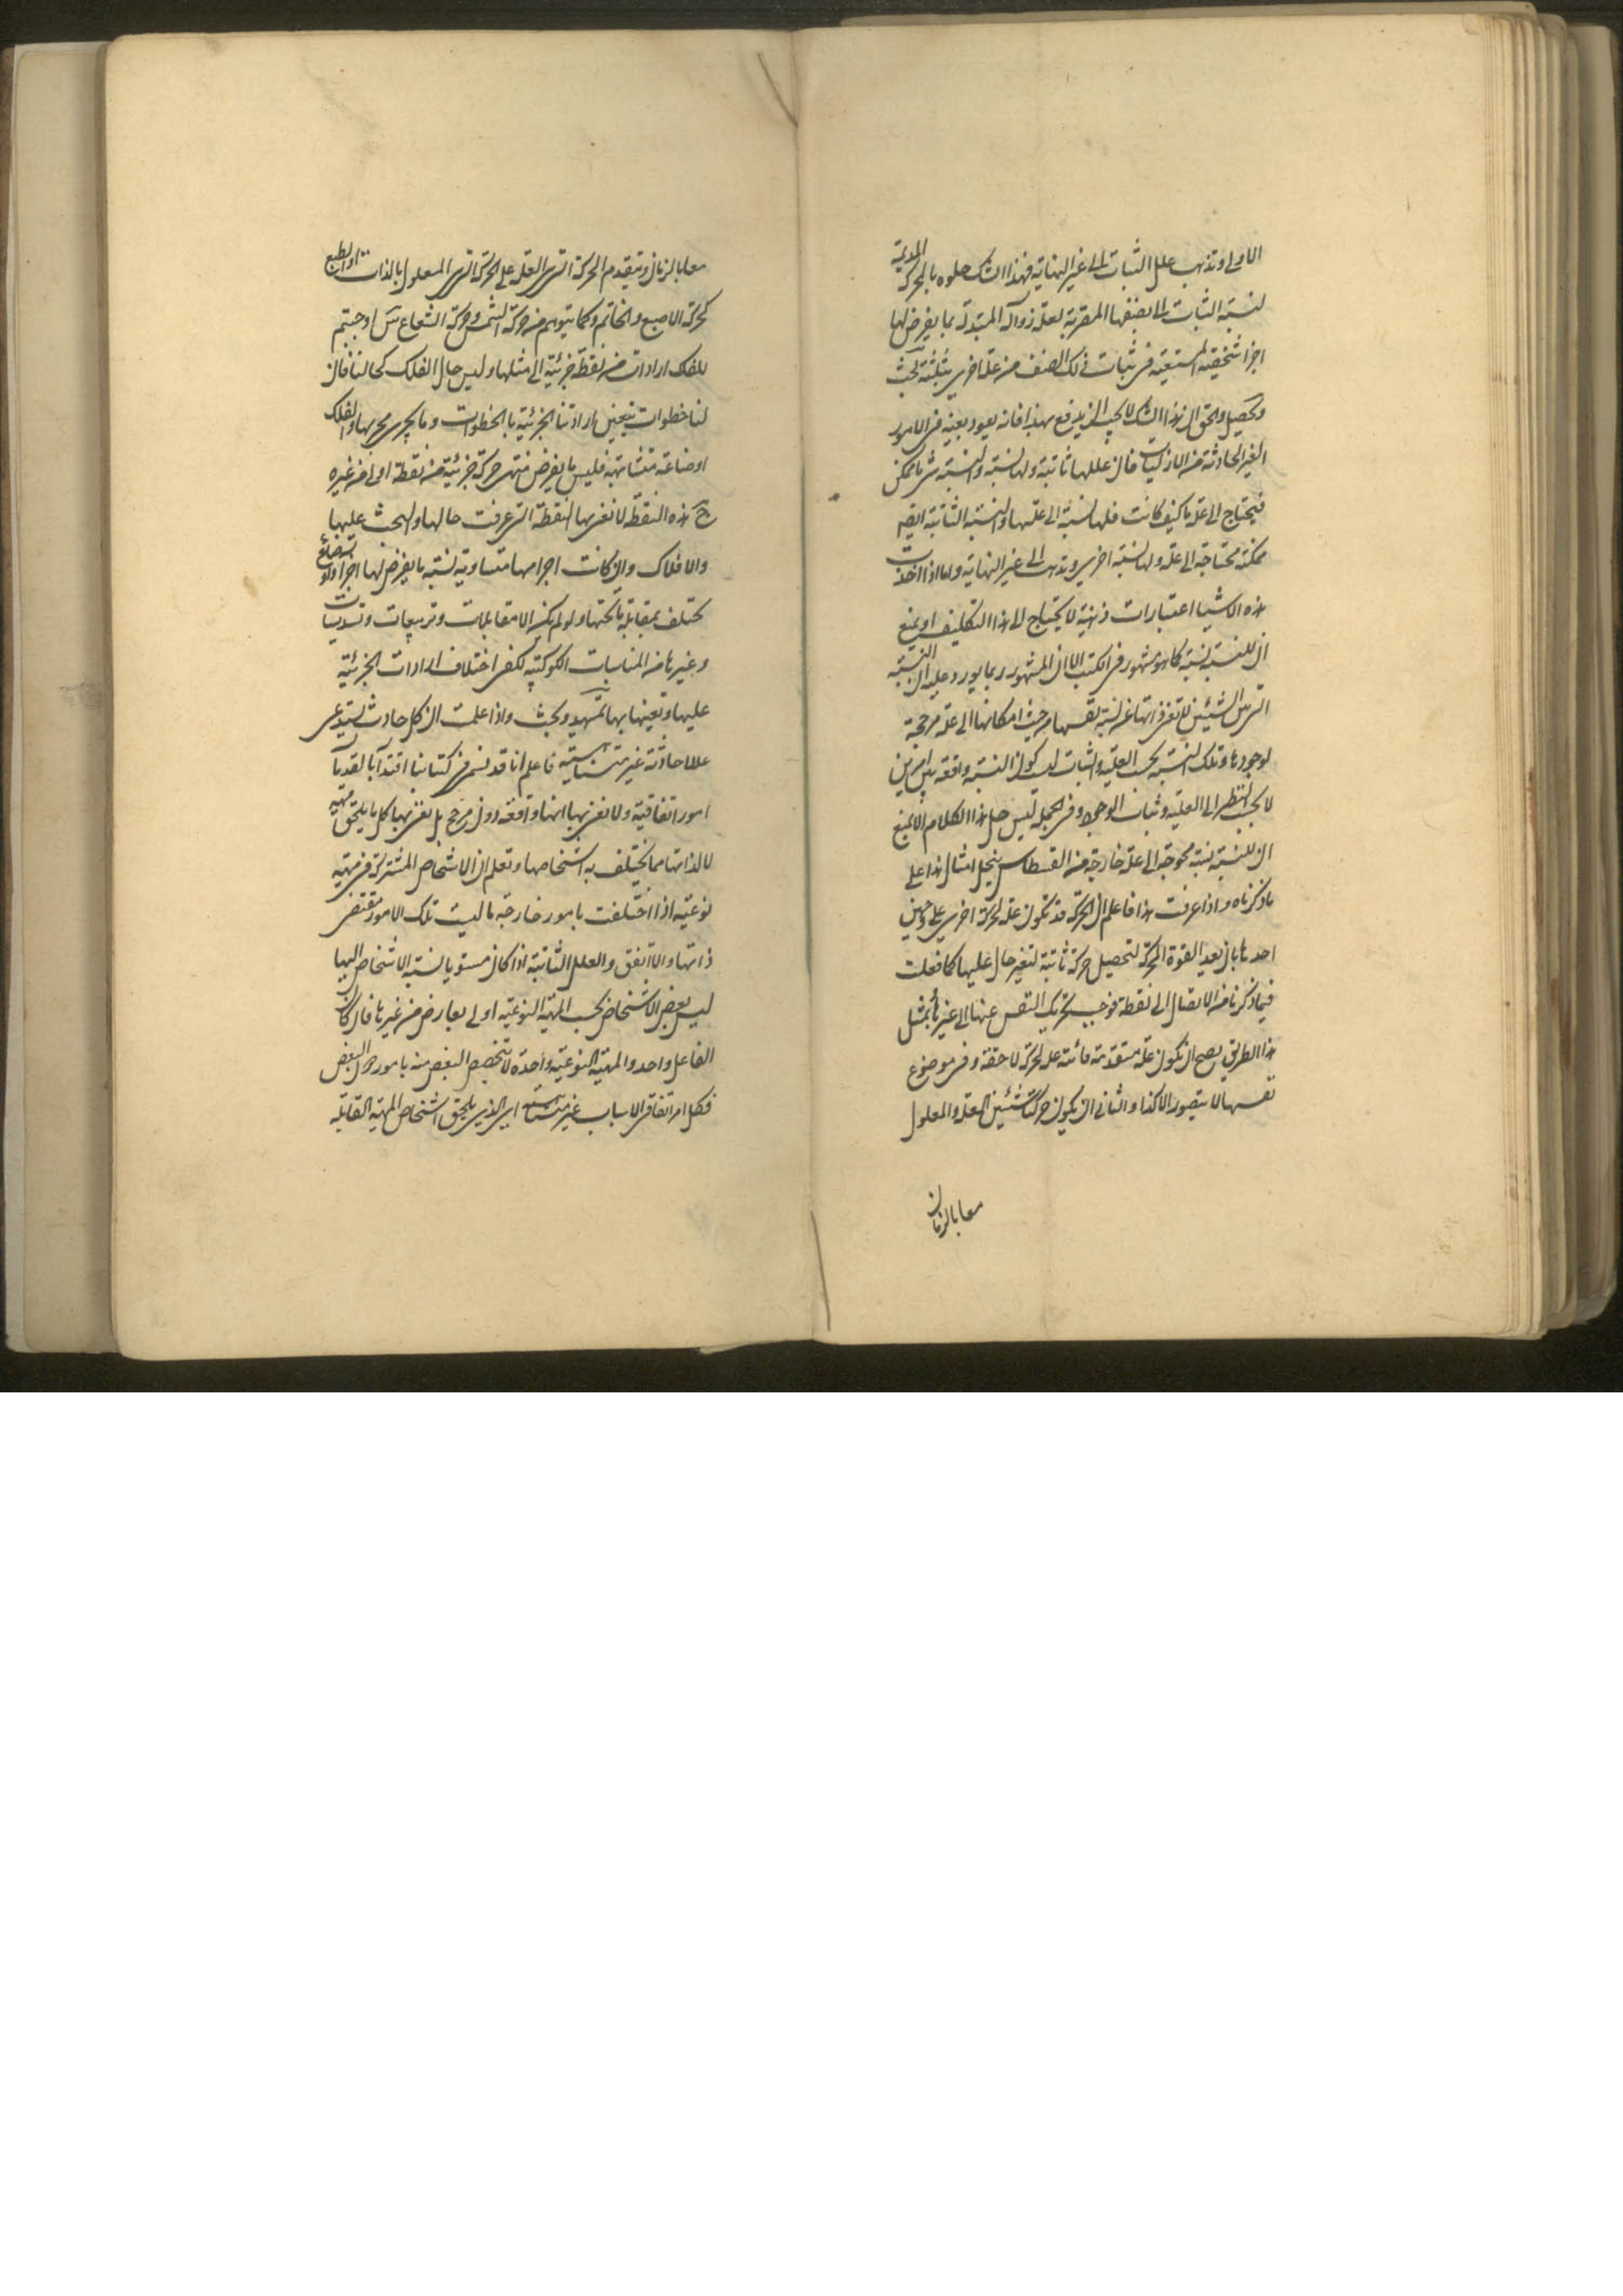 الاولى او تذهب علل الثبات الى غير النهاية فهذا الشك حلوه بالحركة الدورية
لنسبة الثبات الى بعضها المقربة لعلة زوالة المبتدلة بما يفرض لها
اجزا شخصية لمستعينة في ثبات ذلك الصنف من علة اخرى يثبته بحث
وتحصيل والحق ان هذا الشك لا يجب ان يدفع بهذا فانه يعود بعينه في الامور
الغير الحادثة من الازليات فان عللها ثابتة ولها نسبة والنسبة شي ما ممكن
فيحتاج الى علة ما كيف كانت فلها نسبة الى علتها والنسبة الثابتة ايضا
ممكنة محتاجة الى علة ولها نسبة اخرى وتذهب الى غير النهاية واما اذا اخذت
هذه الاشيا اعتبارات ذهنية لا يحتاج الى هذا التكليف او يمنع
ان للنسبة نسبة كما هو مشهور في الكتب الا ان المشهور ربما يورد عليه ان النسبة
التي بين الشيئين تغني ذاتها عن نسبة نفسها من حيث امكانها الى علة مرجحة
لوجودها وتلك النسبة بحسب العلية والثبات لا كون النسبة واقعة بين امرين
لا يجب النظر الى العلية وثبات الوجود وفي الجملة ليس حل هذا الكلام الا بمنع
ان للنسبة نسبة محوجة الى علة خارجة من القسطاس ينحل امثال هذا على
ما ذكرناه واذا عرفت هذا فاعلم ان الحركة قد تكون علة لحركة اخرى على وجهين
احدهما بان يعد القوة المحركة لتحصيل حركة ثانية لتغير حال عليها كما فعلت
فيما ذكرنا من الاتصال الى نقطة فوجب تحريك النفس عنها الى غيرها بمثل
هذا الطريق يصح ان تكون علة متقدمة فائتة علة لحركة لاحقة وفي موضوع
نفسها لا يتصور الا كذا والثاني ان يكون حركتا شيئين العلة والمعلول
معا بالزمان
معا بالزمان وتتقدم الحركة التي هي العلة على الحركة التي هي المعلول بالذات او الطبع
كحركة الاصبع والخاتم وكما يتوهم من حركة الشمس وحركة الشعاع س اوجبتم
للفلك ارادات من نقطة جزئية الى مثلها وليس حال الفلك كحالنا فان
لنا خطوات يتعين ارادتنا الجزئية بالخطوات وما يجري مجريها والفلك
اوضاعه متشابهة فليس ما يفرض منتهى حركة جزئية من نقطة اولى من غيره
ج هذه النقطة لا نعني بها النقطة التي عرفت حالها والبحث عليها
والافلاك وان كانت اجرامها متساوية نسبة ما يفرض لها اجزا واوضاع
تختلف بمقابلة ما تحتها ولو لم يكن الا مقابلات وتربيعات وتسديسات
وغيرها من المناسبات الكوكبية لكفى اختلاف الارادات الجزئية
عليها وتعينها بها تمهيد وبحث واذا علمت ان كل حادث يستدعى
عللا حادثة غير متناهية فاعلم انا قد نسمي في كتابنا اقتدآ بالقدمآ
امورا اتفاقية ولا نعني بها انها واقعة دون مرجح بل نعني بها كل ما يلحق مهية
لا لذاتها مما يختلف به اشخاصها وتعلم ان الاشخاص المشتركة في مهية
نوعية اذا اختلفت بامور خارجة ما ليست تلك الامور مقتضى
ذاتها والا اتفق والعلل الثابتة اذا كان مستويا نسبة الاشخاص اليها
ليس بعض الاشخاص بحسب المهية النوعية اولى بعارض من غيرها فان كان
الفاعل واحد والمهية النوعية واحدة لا يتخصص البعض منه بامور دون البعض
فكل امر اتفاقي الاسباب غير متناهية اي الذي يلحق اشخاص المهية القابلة